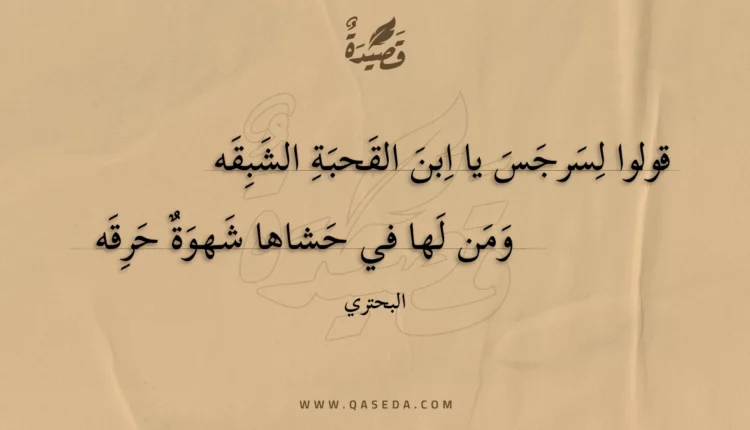 قَصِيدَةٌ
قولوا لِسَرجَسَ يا اِبنَ القَحبَةِ الشَبِقَه
وَمَن لَها في حَشاها شَهوَةٌ حَرِقَه
البحتري
WWW.QASEDA.COM